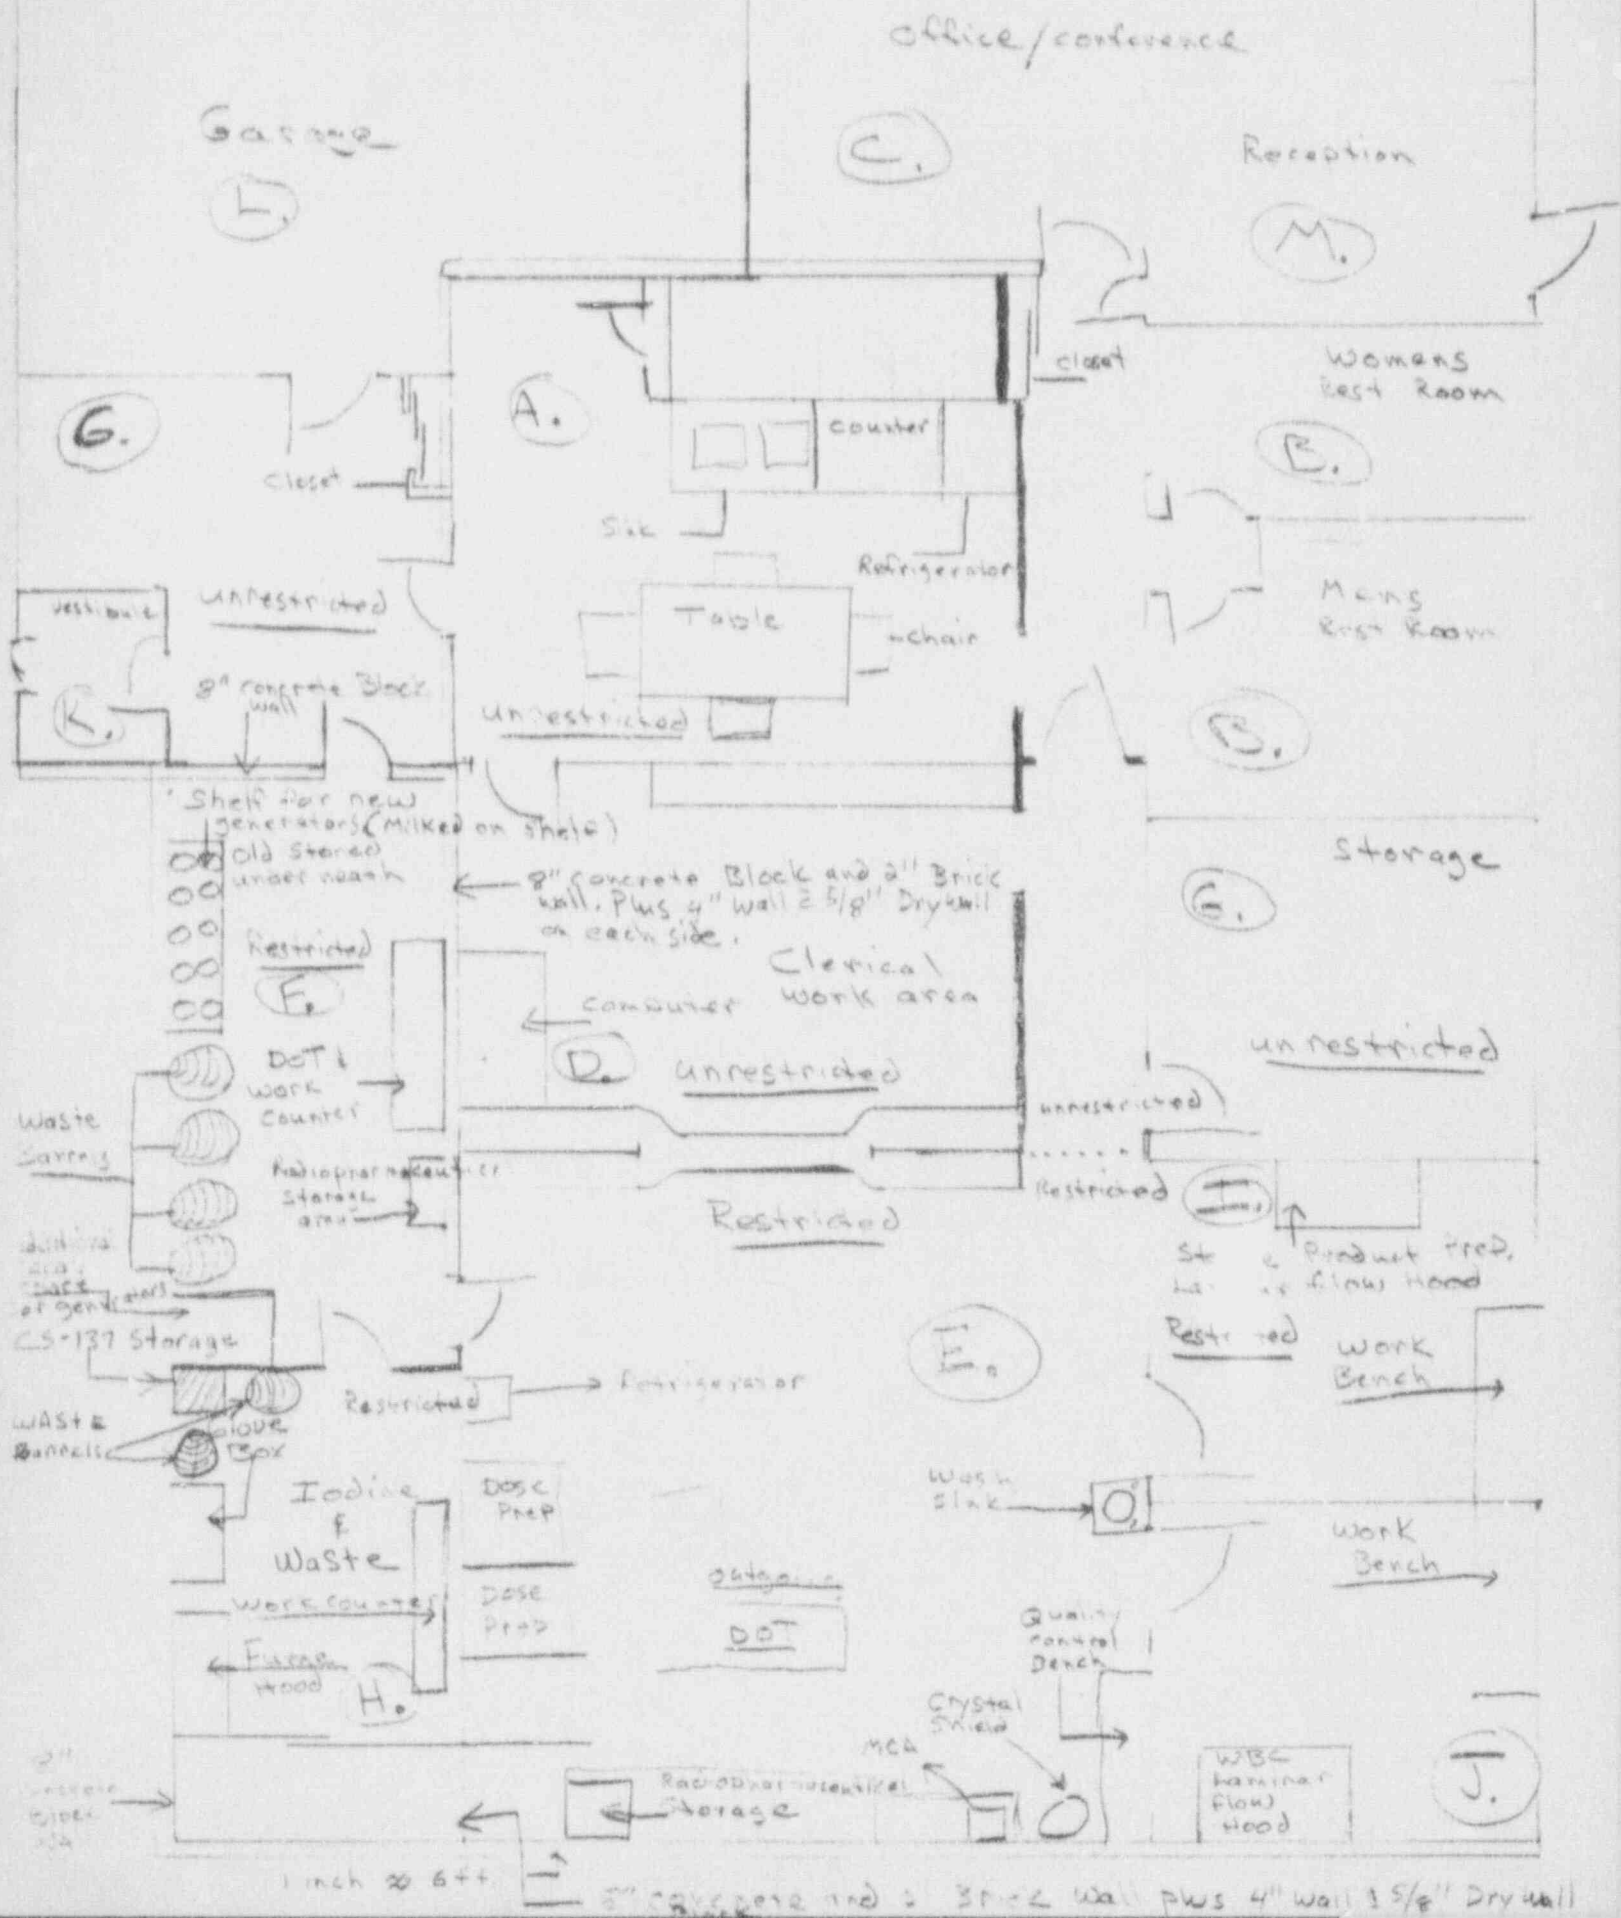 Office/conference
Garage
L.
C.
Reception
M.
closet
Womens
Rest Room
G.
A.
counter
B.
Closet
Sink
Refrigerator
Vestibule
unrestricted
Table
chair
Mens
Rest Room
8" concrete Block
wall
K.
unrestricted
B.
Shelf for new
generators (Milked on shelf)
Old Stored
under neath
Storage
8" Concrete Block and 2" Brick
wall. Plus 4" Wall 5/8" Drywall
on each side.
G.
Restricted
F.
Clerical
work area
computer
D.
unrestricted
unrestricted
DOT &
work
counter
unrestricted
Waste
Barrels
Radiopharmaceutical
Storage
area
Restricted
Restricted
I.
Product Prep.
flow Hood
or generators
CS-137 Storage
Restricted
E.
Work
Bench
Refrigerator
Restricted
WASTE
Barrels
Glove
Box
Iodine
&
Waste
Dose
Prep
Wash
Sink
Work
Bench
Work counter
Dose
Prep
outgoing
DOT
Quality
control
Bench
Fume
Hood
H.
Crystal
Shield
MCA
WBC
Laminar
Flow
Hood
J.
Radiopharmaceutical
Storage
1 inch ≈ 6 ft
8" concrete and Brick Wall plus 4" wall 5/8" Drywall
Block